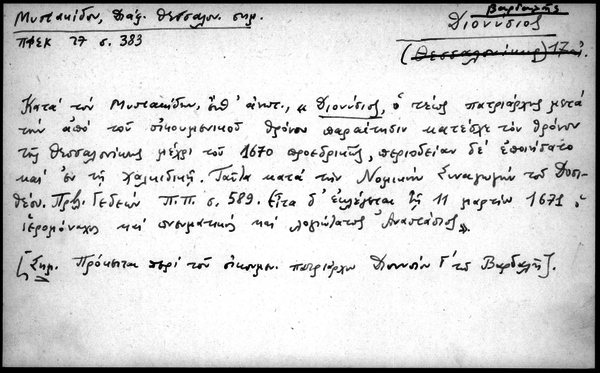 Μυστακίδου, Διάφ. Θεσσαλον. σημ.
ΠΦΕΚ 27 σ. 383
Βαρδαλῆς
Διονύσιος
(Θεσσαλονίκης) 17 αἰ.
Κατά τόν Μυστακίδην, ἔνθ' ἀνωτ., "Διονύσιος, ὁ τέως πατριάρχης μετά
τήν ἀπό τοῦ οἰκουμενικοῦ θρόνου παραίτησιν κατέσχε τόν θρόνον
τῆς Θεσσαλονίκης μέχρι τοῦ 1670 προεδρικῆς, περιοδείαν δέ ἐποιήσατο
καί ἐν τῇ Χαλκιδικῇ. Ταῦτα κατά τήν Νομικήν Συναγωγήν τοῦ Δοσι-
θέου. Πρβλ. Γεδεών Π.Π. σ. 589. Εἶτα δ' ἐκλέγεται τῇ 11 μαρτίου 1671 ὁ
ἱερομόναχος καί πνευματικός καί λογιώτατος Ἀναστάσιος".
[Σημ. Πρόκειται περί τοῦ οἰκουμ. πατριάρχου Διονυσίου Γ' τοῦ Βαρδαλῆ].